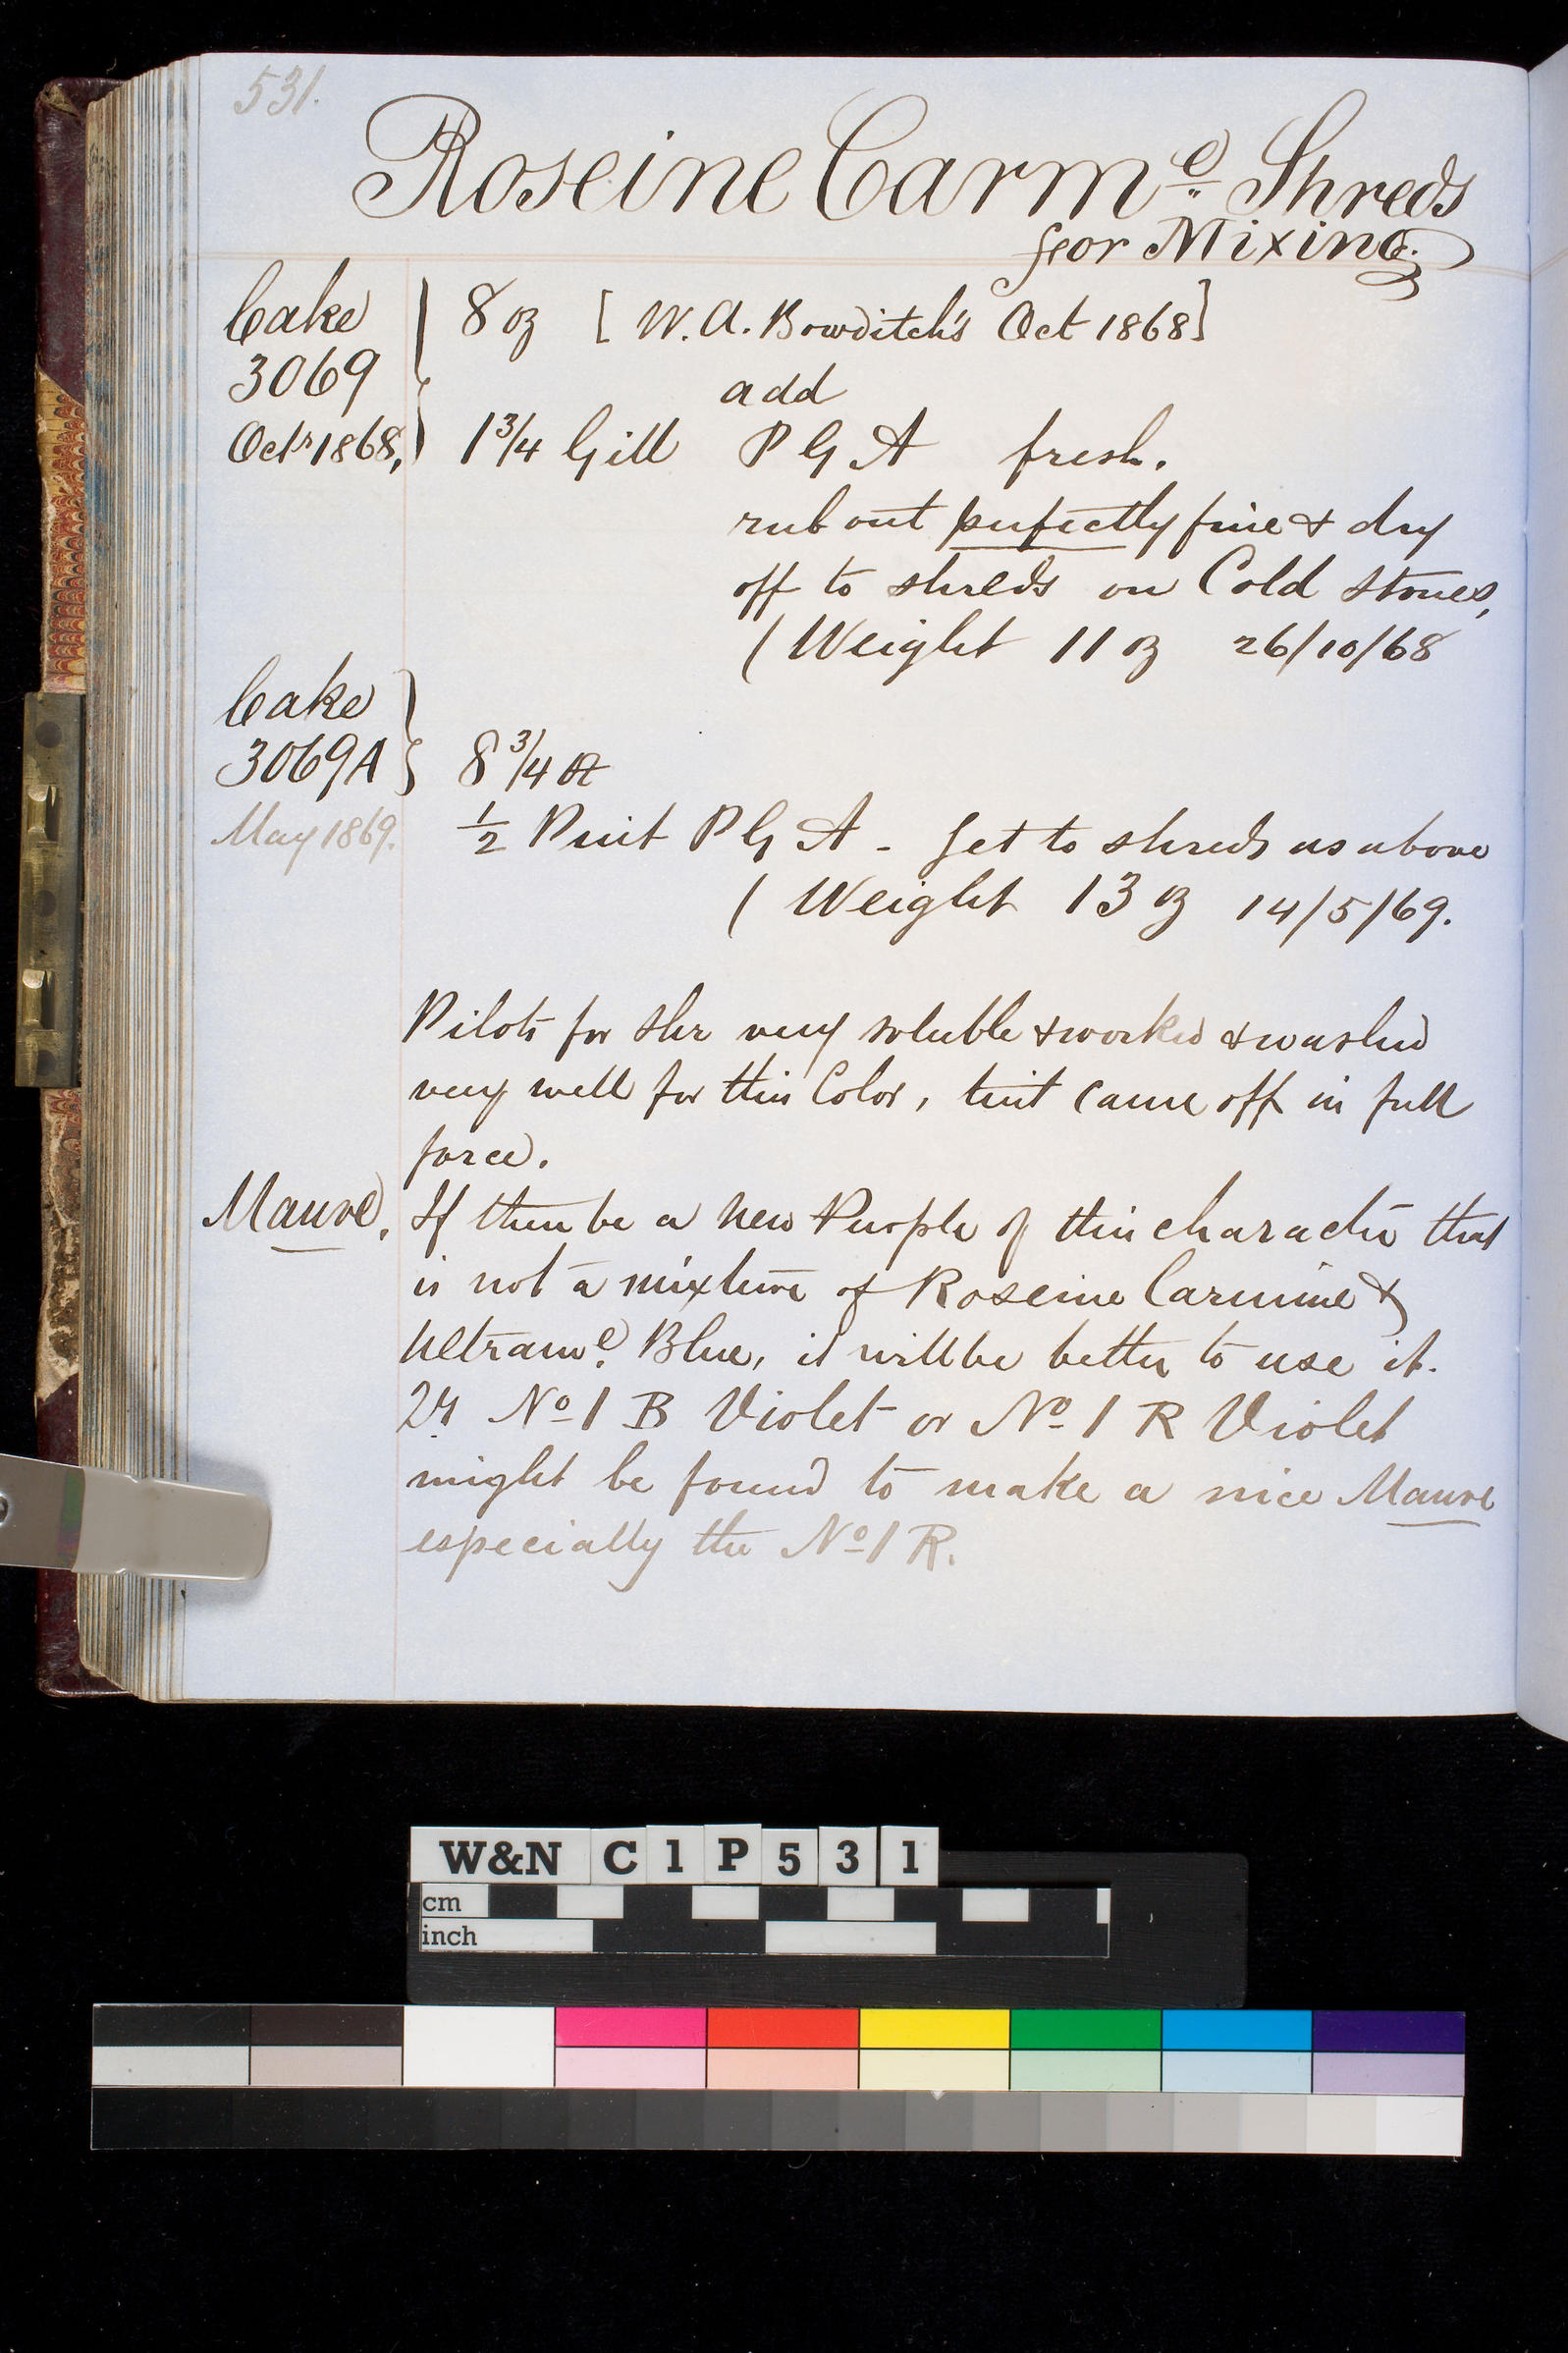 531.
Roseine Carm.e Shreds
for Mixing.
Cake 8 oz [ W. A. Bowditch's Oct 1868 ]
3069 add
Octr 1868, 1 3/4 Gill P G A fresh.
rub out perfectly fine & dry
off to shreds on Cold Stones,
( Weight 11 oz 26/10/68
Cake
3069A 8 3/4 oz
May 1869. 1/2 Pint P G A - Get to shreds as above
( Weight 13 oz 14/5/69.
Pilots for shr very soluble & worked & washed
very well for this Color, tint came off in full
force.
Mauve, If there be a new Purple of this character that
is not a mixture of Roseine Carmine &
Ultram.e Blue, it will be better to use it.
No 1 B Violet or No 1 R Violet
might be found to make a nice Mauve
especially the No 1 R.
W&N C1P531
cm
inch